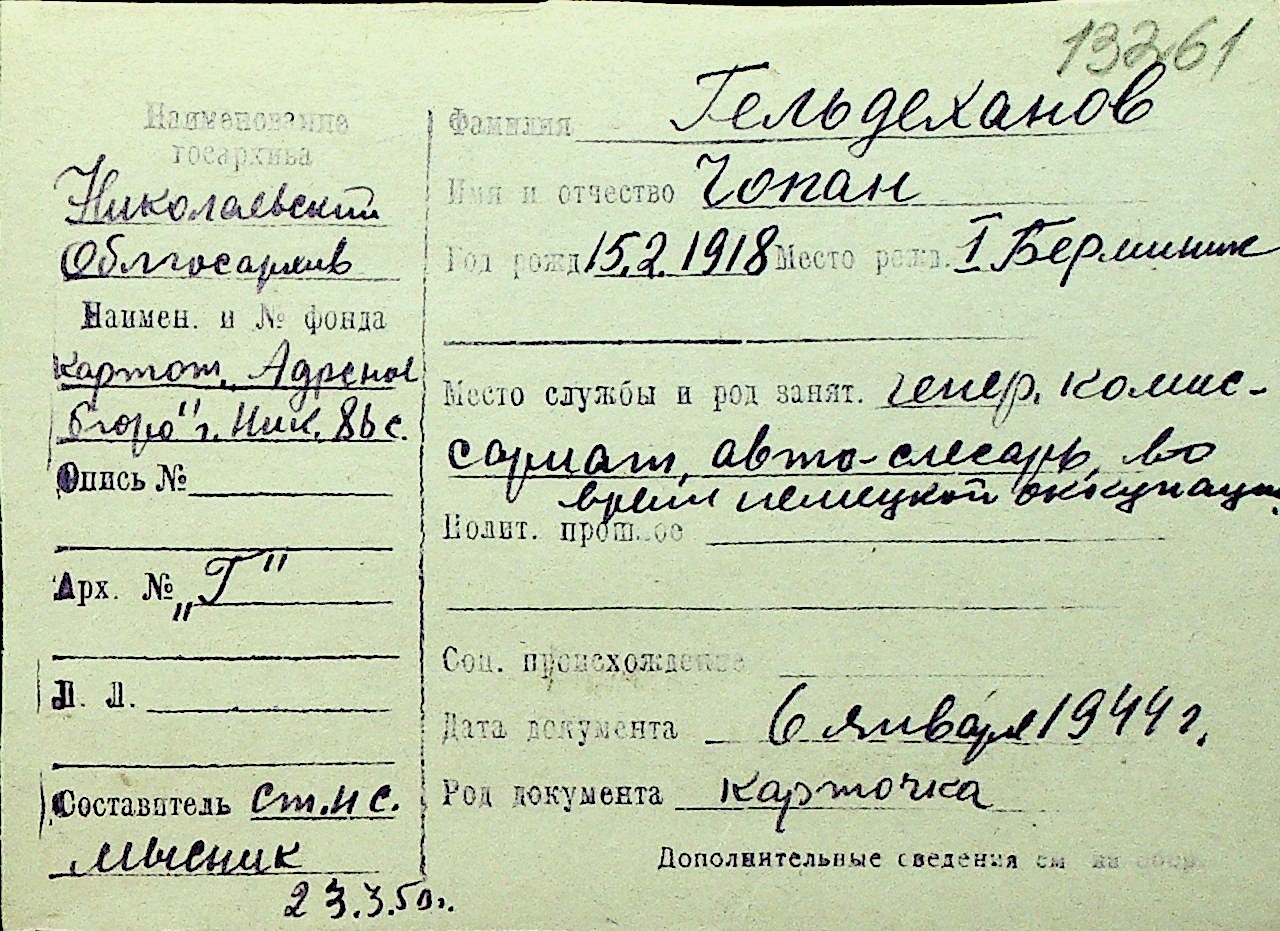 13261
Наименование
госархива
Николаевский
Облгосархив
Наимен. и № фонда
картот. Адресное
бюро" г. Ник. 86 с.
Опись №
Арх. № „Г"
Л. Л.
Составитель ст. н с.
Мысник
23.3.50г.
Фамилия Гельдеханов
Имя и отчество Чопан
Год рожд. 15.2.1918 Место рожд. I Берминик
Место службы и род занят. генер. комис-
сариат, авто-слесарь, во
время немецкой оккупации.
Полит. прошлое
Соц. происхождение
Дата документа 6 января 1944 г.
Род документа карточка
Дополнительные сведения см на обор.